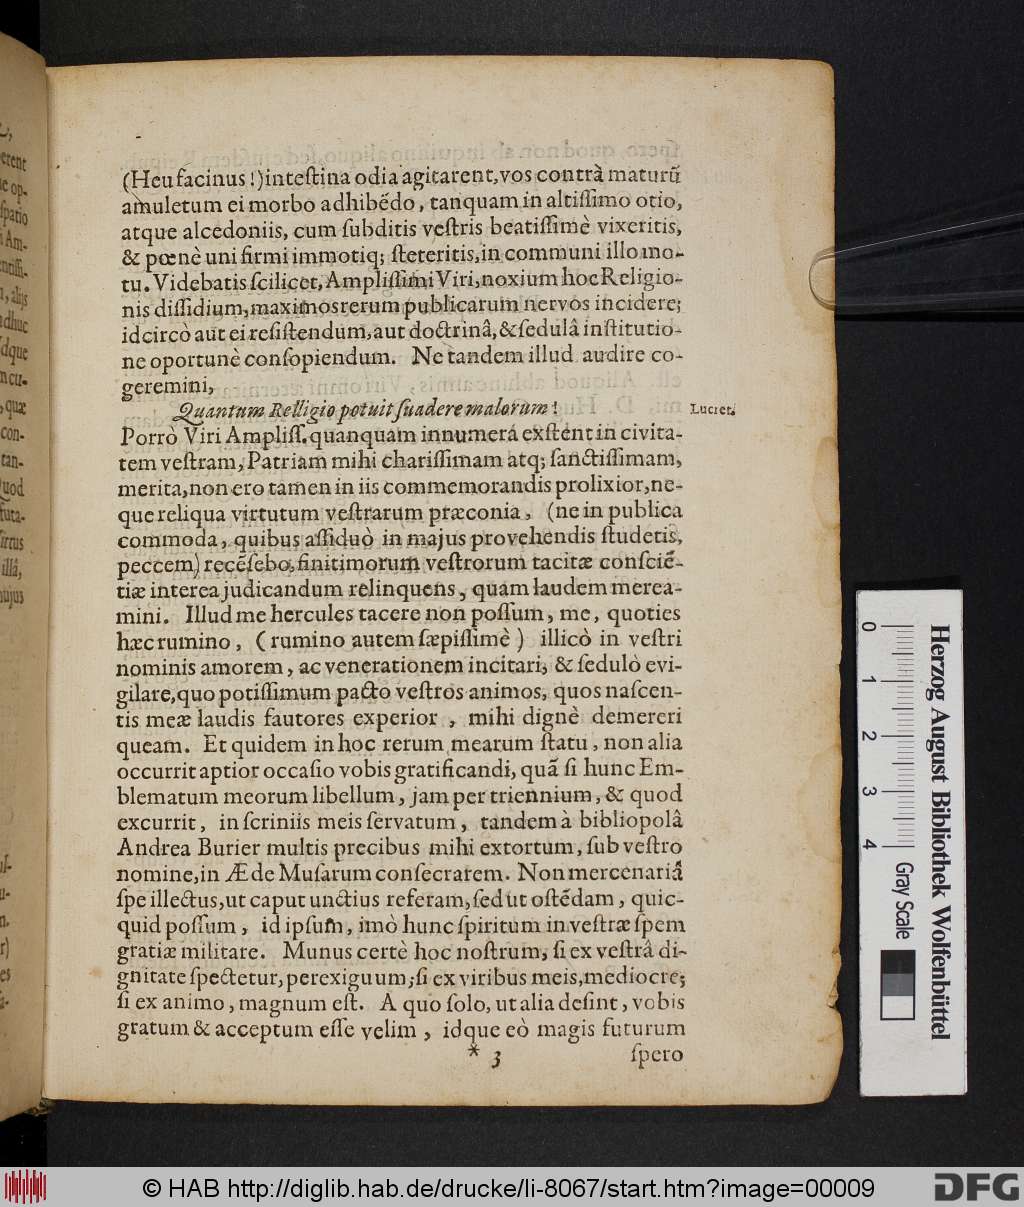 (Heu facinus!) inteſtina odia agitarent, vos contrà maturũ
amuletum ei morbo adhibẽdo, tanquam in altiſſimo otio,
atque alcedoniis, cum ſubditis veſtris beatiſſimè vixeritis,
& pœnè uni firmi immotiq; ſteteritis, in communi illo mo-
tu. Videbatis ſcilicet, Ampliſſimi Viri, noxium hoc Religio-
nis diſſidium, maximos rerum publicarum nervos incidere;
idcircò aut ei reſiſtendum, aut doctrinâ, & ſedulâ inſtitutio-
ne oportunè conſopiendum. Ne tandem illud audire co-
geremini,
Quantum Relligio potuit ſuadere malorum!
Lucret.
Porrò Viri Ampliſſ. quanquam innumera exſtent in civita-
tem veſtram, Patriam mihi chariſſimam atq; ſanctiſſimam,
merita, non ero tamen in iis commemorandis prolixior, ne-
que reliqua virtutum veſtrarum præconia, (ne in publica
commoda, quibus aſſiduò in majus provehendis ſtudetis,
peccem) recẽſebo, finitimorum veſtrorum tacitæ conſciẽ-
tiæ interea judicandum relinquens, quam laudem merea-
mini. Illud me hercules tacere non poſſum, me, quoties
hæc rumino, (rumino autem ſæpiſſimè) illicò in veſtri
nominis amorem, ac venerationem incitari, & ſedulò evi-
gilare, quo potiſſimum pacto veſtros animos, quos naſcen-
tis meæ laudis fautores experior, mihi dignè demereri
queam. Et quidem in hoc rerum mearum ſtatu, non alia
occurrit aptior occaſio vobis gratificandi, quã ſi hunc Em-
blematum meorum libellum, jam per triennium, & quod
excurrit, in ſcriniis meis ſervatum, tandem à bibliopolâ
Andrea Burier multis precibus mihi extortum, ſub veſtro
nomine, in Æde Muſarum conſecrarem. Non mercenariâ
ſpe illectus, ut caput unctius referam, ſed ut oſtẽdam, quic-
quid poſſum, id ipſum, imò hunc ſpiritum in veſtræ ſpem
gratiæ militare. Munus certè hoc noſtrum, ſi ex veſtrâ di-
gnitate ſpectetur, perexiguum; ſi ex viribus meis, mediocre;
ſi ex animo, magnum eſt. A quo ſolo, ut alia deſint, vobis
gratum & acceptum eſſe velim, idque eò magis futurum
* 3
ſpero
0 1 2 3 4
Herzog August Bibliothek Wolfenbüttel
Gray Scale
© HAB http://diglib.hab.de/drucke/li-8067/start.htm?image=00009
DFG